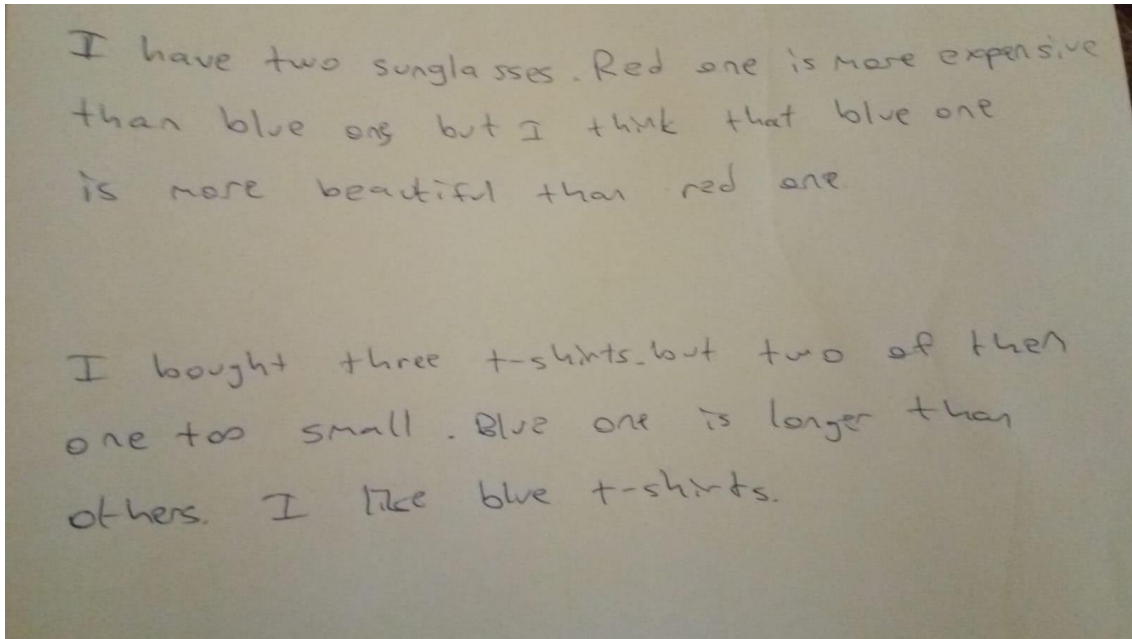 I have two sunglasses. Red one is more expensive
than blue one but I think that blue one
is more beautiful than red one
I bought three t-shirts. but two of then
one too small. Blue one is longer than
others. I like blue t-shirts.